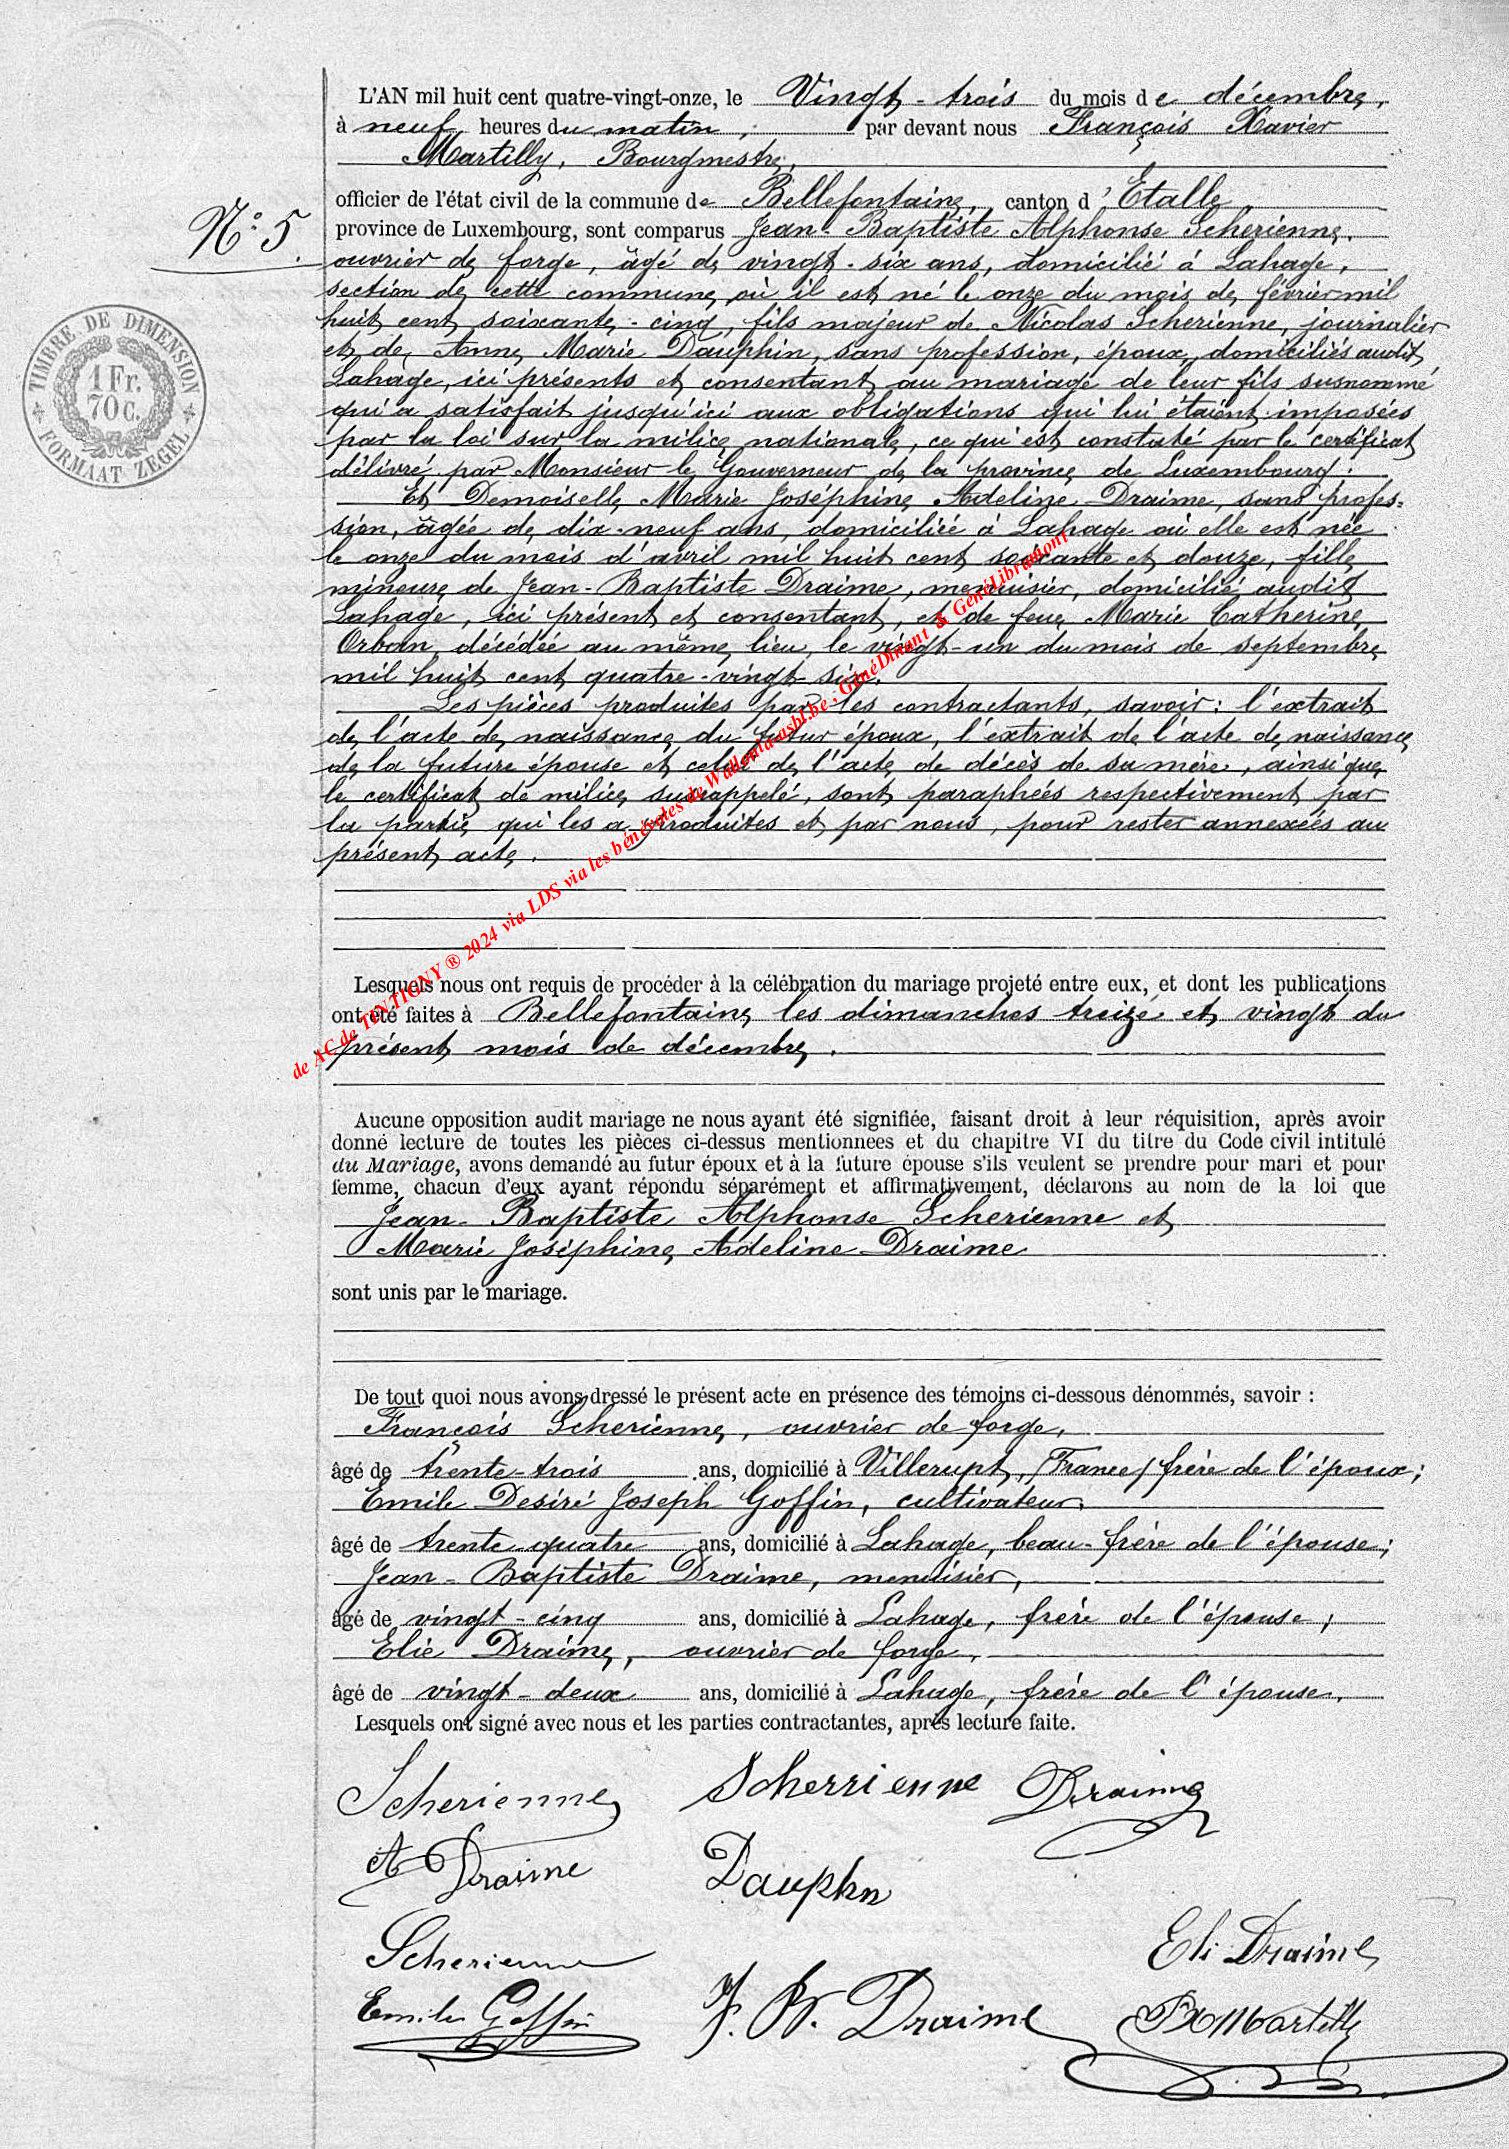 L'AN mil huit cent quatre-vingt-onze, le Vingt-trois du mois de décembre,
à neuf heures du matin, par devant nous François Xavier
Martilly, Bourgmestre,
officier de l'état civil de la commune de Bellefontaine, canton d'Etalle,
province de Luxembourg, sont comparus Jean-Baptiste Alphonse Scherienne,
N° 5.
ouvrier de forge, âgé de vingt-six ans, domicilié à Lahage,
section de cette commune où il est né le onze du mois de février mil
huit cent soixante-cinq, fils majeur de Nicolas Scherienne, journalier
et de Anne Marie Dauphin, sans profession, époux, domiciliés audit
Lahage, ici présents et consentant au mariage de leur fils susnommé
qui a satisfait jusqu'ici aux obligations qui lui étaient imposées
par la loi sur la milice nationale, ce qui est constaté par le certificat
délivré par Monsieur le Gouverneur de la province de Luxembourg.
TIMBRE DE DIMENSION
1 Fr.
70 C.
FORMAAT ZEGEL
Et Demoiselle Marie Joséphine Adeline Draime, sans profes-
sion, âgée de dix-neuf ans, domiciliée à Lahage où elle est née
le onze du mois d'avril mil huit cent soixante et douze, fille
mineure de Jean-Baptiste Draime, menuisier, domicilié audit
Lahage, ici présent et consentant, et de feue Marie Catherine
Orban, décédée au même lieu, le vingt-un du mois de septembre
mil huit cent quatre-vingt-six.
Les pièces produites par les contractants, savoir: l'extrait
de l'acte de naissance du futur époux, l'extrait de l'acte de naissance
de la future épouse et celui de l'acte de décès de sa mère, ainsi que
le certificat de milice susrappelé, sont paraphées respectivement par
la partie qui les a produites et par nous, pour rester annexées au
présent acte.
de AC de TINTIGNY ® 2024 via LDS via les bénévoles de Wallonia-asbl.be, GénéDinant & GénéLibramont
Lesquels nous ont requis de procéder à la célébration du mariage projeté entre eux, et dont les publications
ont été faites à Bellefontaine les dimanches treize et vingt du
présent mois de décembre.
Aucune opposition audit mariage ne nous ayant été signifiée, faisant droit à leur réquisition, après avoir
donné lecture de toutes les pièces ci-dessus mentionnees et du chapitre VI du titre du Code civil intitulé
du Mariage, avons demandé au futur époux et à la future épouse s'ils veulent se prendre pour mari et pour
femme, chacun d'eux ayant répondu séparément et affirmativement, déclarons au nom de la loi que
Jean-Baptiste Alphonse Scherienne et
Marie Joséphine Adeline Draime
sont unis par le mariage.
De tout quoi nous avons dressé le présent acte en présence des témoins ci-dessous dénommés, savoir :
François Scherienne, ouvrier de forge,
âgé de trente-trois ans, domicilié à Villerupt, (France) frère de l'époux;
Emile Desiré Joseph Goffin, cultivateur,
âgé de trente-quatre ans, domicilié à Lahage, beau-frère de l'épouse;
Jean-Baptiste Draime, menuisier,
âgé de vingt-cinq ans, domicilié à Lahage, frère de l'épouse;
Elie Draime, ouvrier de forge,
âgé de vingt-deux ans, domicilié à Lahage, frère de l'épouse.
Lesquels ont signé avec nous et les parties contractantes, après lecture faite.
Scherienne Scherrienne Draime
A Draime Dauphn
Scherienne Eli Draime
Emile Goffin J. B. Draime FX Martilly